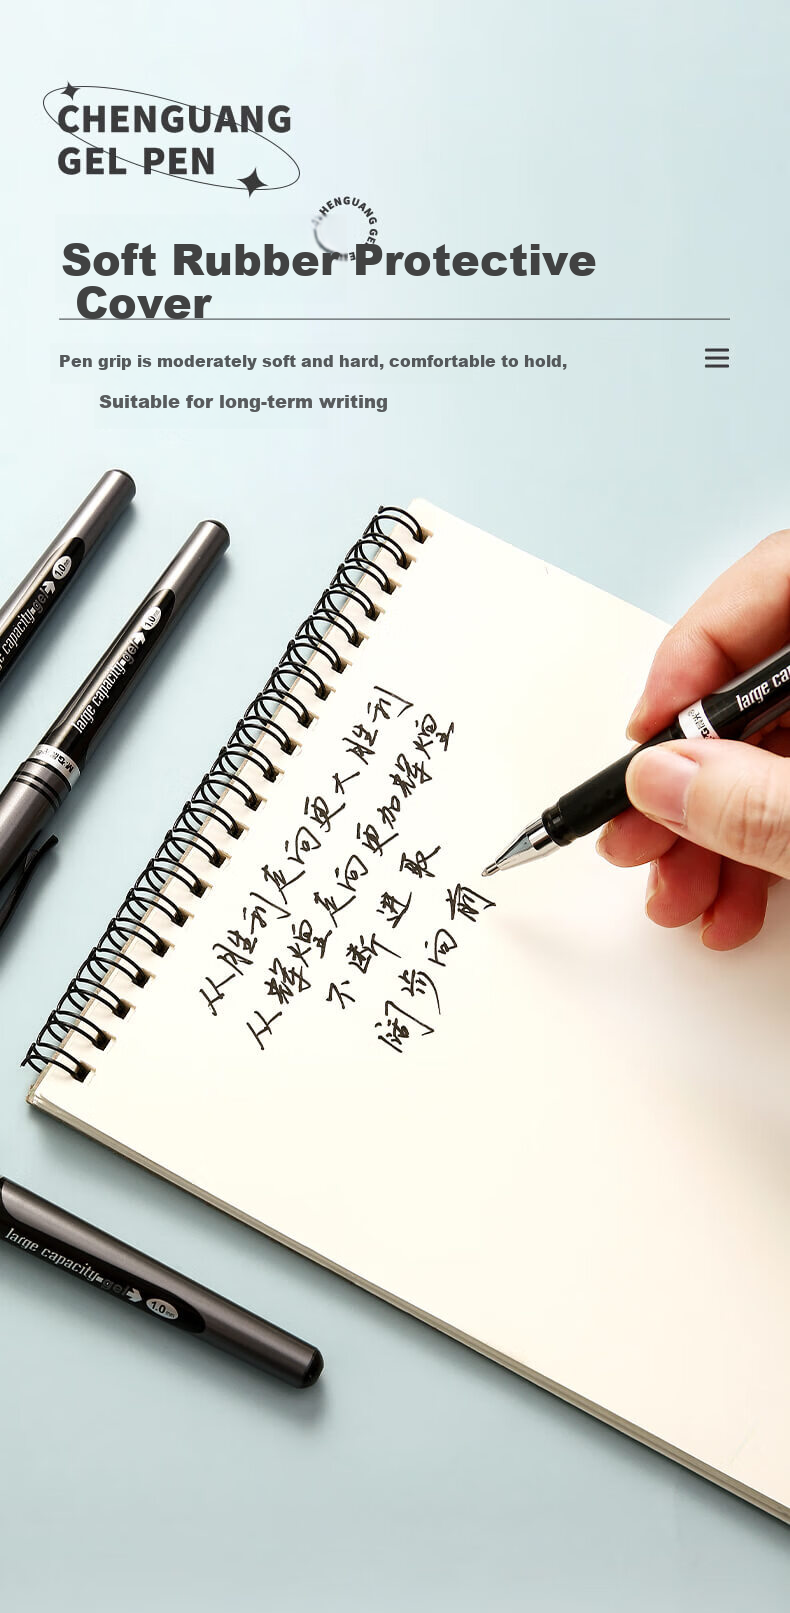 CHENGUANG
GEL PEN
HENGUANG GE
Soft Rubber Protective
Cover
Pen grip is moderately soft and hard, comfortable to hold,
Suitable for long-term writing
large capacity gel 1.0mm
large capacity gel 1.0
M&G
large ca
从胜利走向更大胜利
从辉煌走向更加辉煌
不断进取
阔步向前
large capacity gel 1.0mm